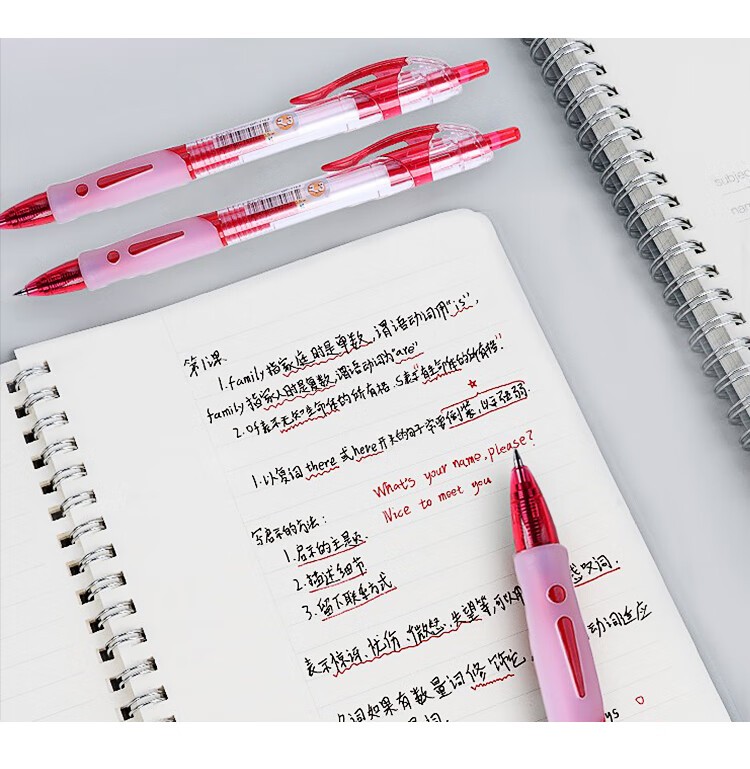 第1课
1.family指家庭时是单数,谓语动词用"is",
family指家人时是复数,谓语动词为"are"
2.Of表示无生命的所有格.S表示"有生命的所有格"
1.以复词there或here开头的句子字要倒装,以示强弱.
What's your name,please?
Nice to meet you
写启示的方法:
1.启示的主题.
2.描述细节
3.留下联系方式
表示惊讶、忧伤、愤怒、失望等可以用 感叹词.
词如果有数量词修饰它, 动词适应
ys